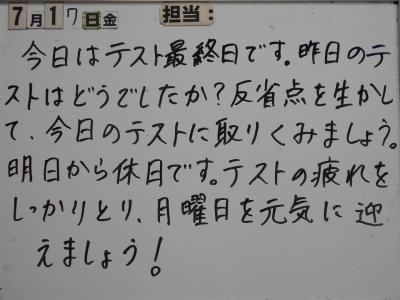 7月17日金 担当:
今日はテスト最終日です。昨日のテ
ストはどうでしたか?反省点を生かし
て、今日のテストに取りくみましょう。
明日から休日です。テストの疲れを
しっかりとり、月曜日を元気に迎
えましょう!